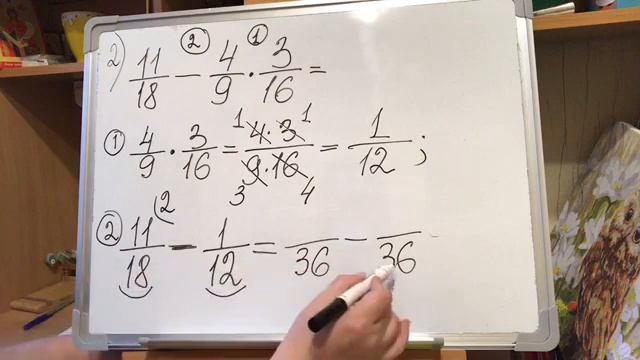 2) 11/18 - ② 4/9 · ① 3/16 =
① 4/9 · 3/16 = 1 4·3 1 / 3 9·16 4 = 1/12 ;
② 11/18 (2 - 1/12 = /36 - /36